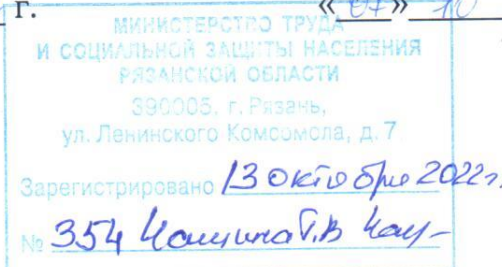 г. «07» 10
МИНИСТЕРСТВО ТРУДА
И СОЦИАЛЬНОЙ ЗАЩИТЫ НАСЕЛЕНИЯ
РЯЗАНСКОЙ ОБЛАСТИ
390005, г. Рязань,
ул. Ленинского Комсомола, д. 7
Зарегистрировано 13 октября 2022г.
№ 354